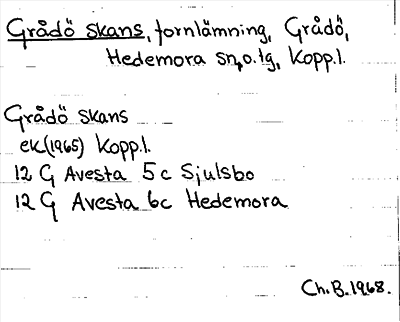 Grådö skans, fornlämning, Grådö,
Hedemora sn, o. tg, Kopp.l.
Grådö skans
ek(1965) Kopp.l.
12 G Avesta 5c Sjulsbo
12 G Avesta 6c Hedemora
Ch.B.1968.